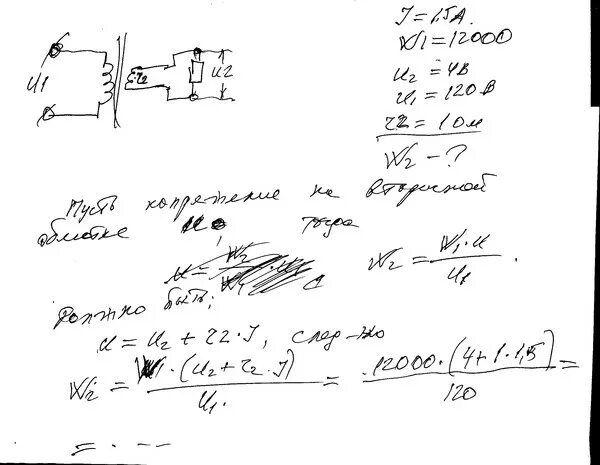 J = 1,5 А.
W1 = 12000
U2 = 4 В
U1 = 120 В
r2 = 1 Ом
W2 - ?
U1
r2
U2
Пусть напряжение на вторичной
обмотке U, тогда
W2 = W1·U / U1.
должно быть:
U = U2 + r2·J, след-но
W2 = W1·(U2 + r2·J) / U1. = 12000·(4+1·1,5) / 120 =
= · - -